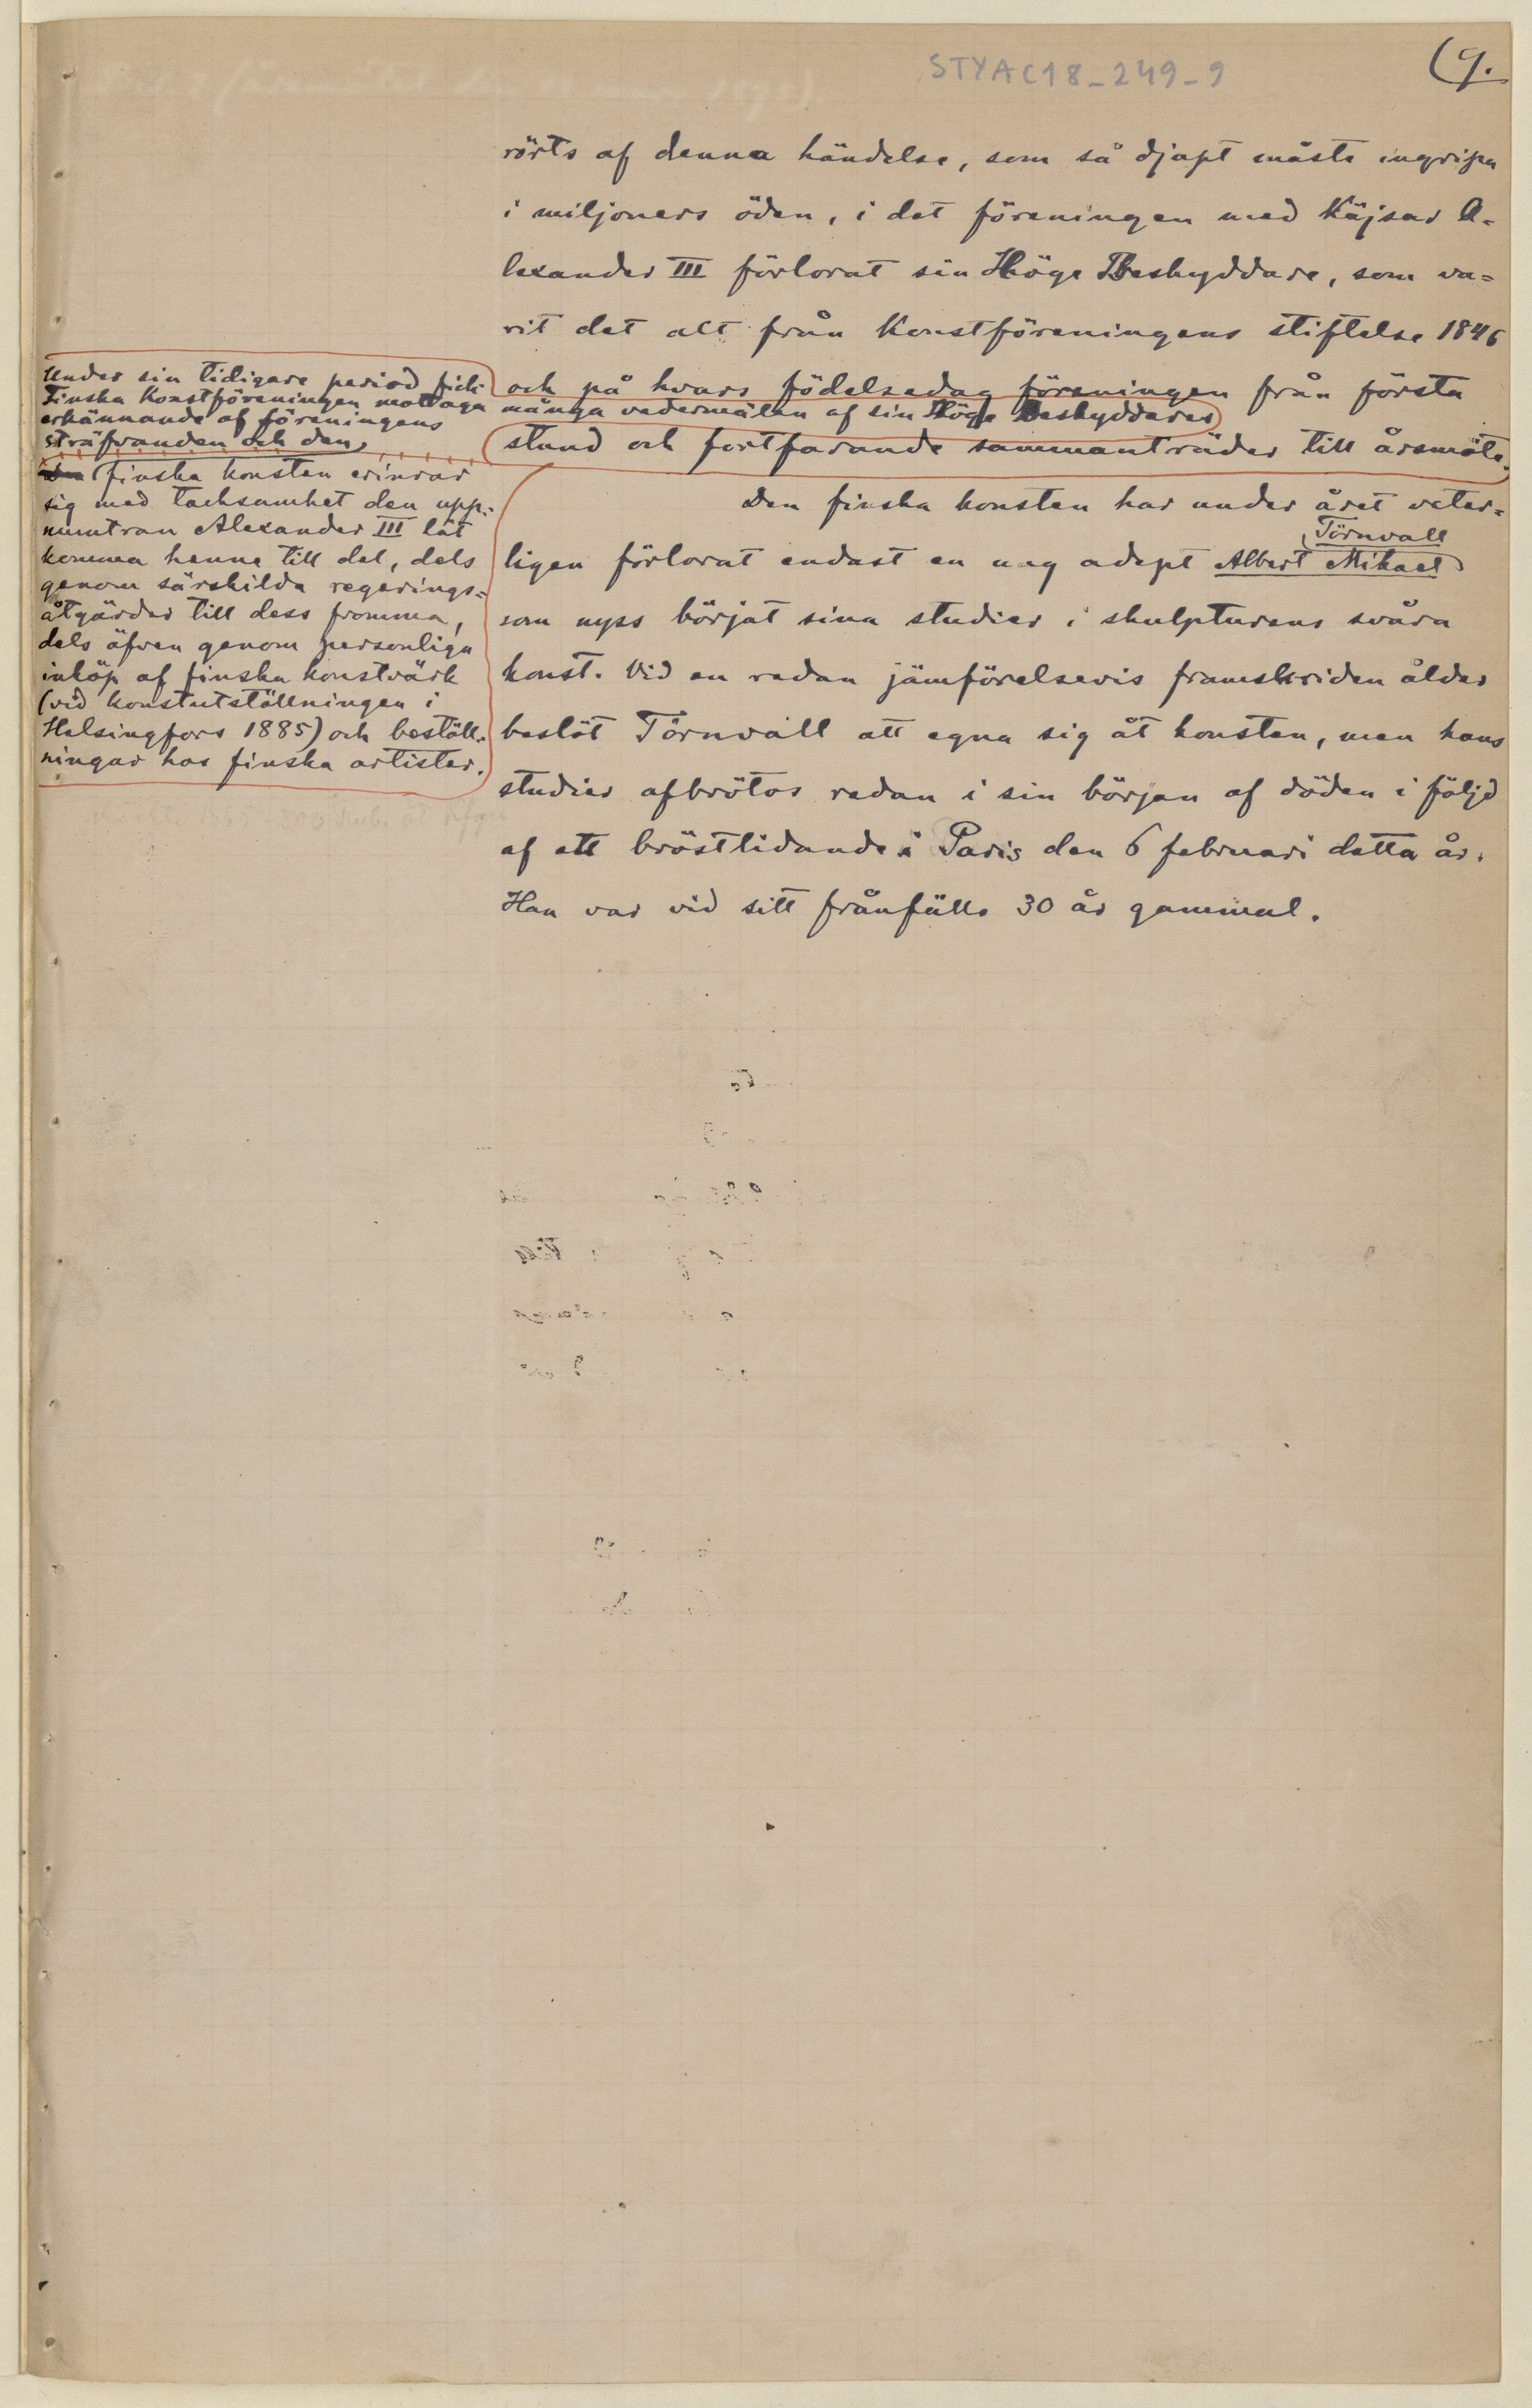 STYAC18_249_9
(9.
rörts af denna händelse, som så djupt måste ingripa
i miljoners öden, i det föreningen med Käjsar A-
lexander III förlorat sin Höge Beskyddare, som va-
rit det alt från Konstföreningens stiftelse 1846
och på hvars födelsedag föreningen från första
stund och fortfarande sammanträder till årsmöte.
Under sin tidigare period fick
Finska Konstföreningen mottaga många vedermälen af sin Höge Beskyddares
erkännande af föreningens
sträfvanden och den
finska konsten erinrar
sig med tacksamhet den upp-
muntran Alexander III lät
komma henne till del, dels
genom särskilda regerings-
åtgärder till dess fromma,
dels äfven genom personliga
inköp af finska konstvärk
(vid konstutställningen i
Helsingfors 1885) och beställ-
ningar hos finska artister.
Den finska konsten har under året veter-
ligen förlorat endast en ung adept Albert Mikael Törnvall
som nyss börjat sina studier i skulpturens svåra
konst. Vid en redan jämförelsevis framskriden ålder
beslöt Törnvall att egna sig åt konsten, men hans
studier afbrötos redan i sin början af döden i följd
af ett bröstlidande i Paris den 6 februari detta år.
Han var vid sitt frånfälle 30 år gammal.